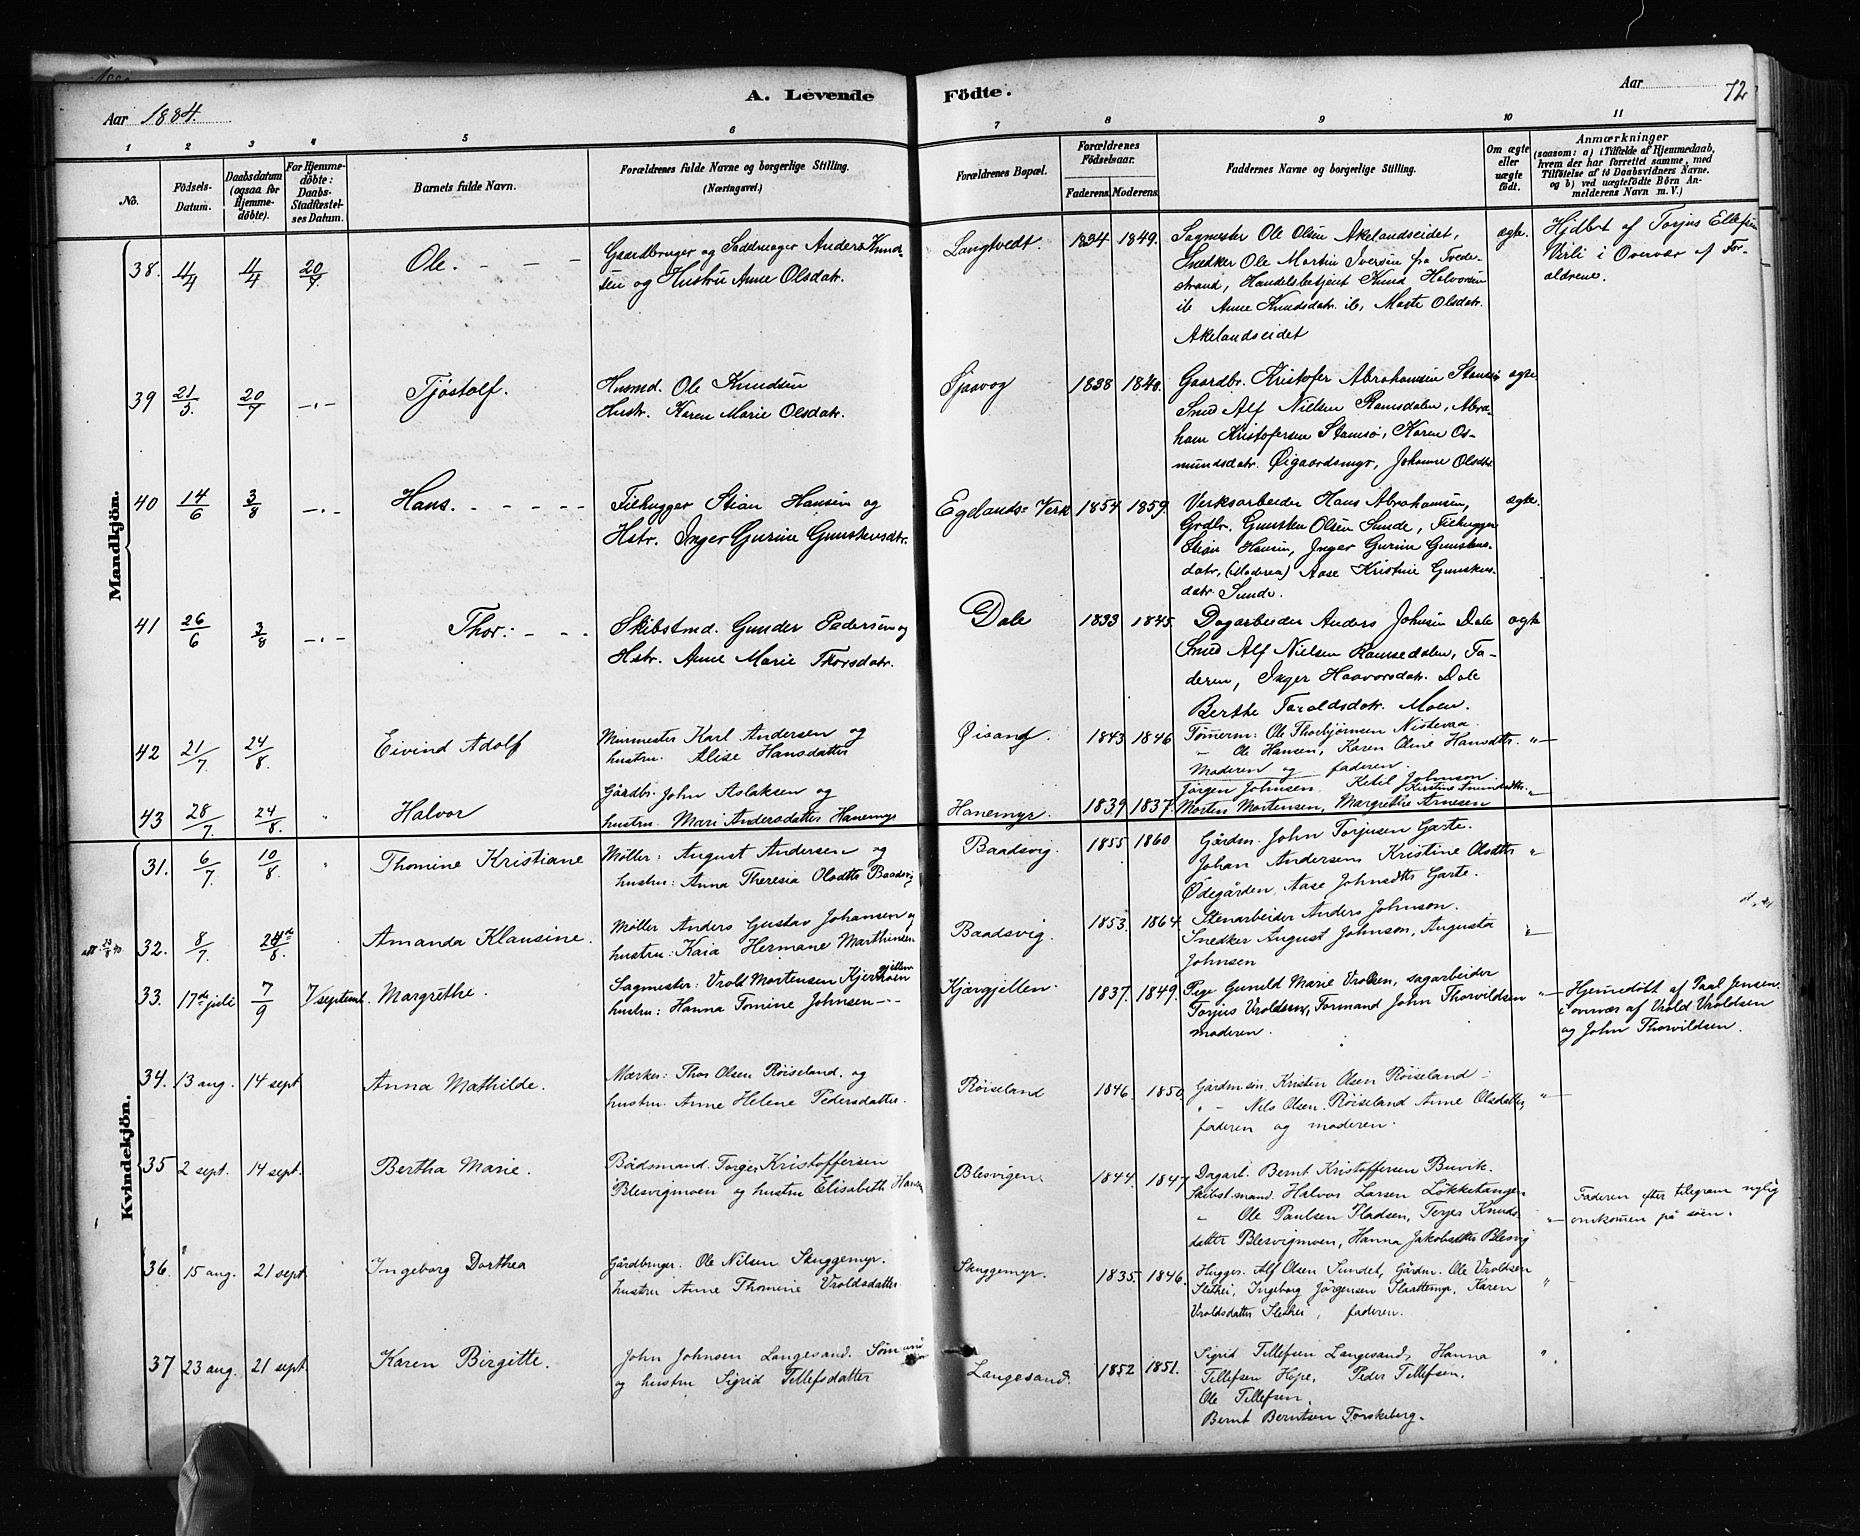 Aar 1884.
A. Levende Födte.
Aar
72
1 2 3 4 5 6 7 8 9 10 11
No.
Födsels-Datum.
Daabsdatum (ogsaa for Hjemme-döbte).
For Hjemme-döbte: Daabs-Stadfæstel-ses Datum.
Barnets fulde Navn.
Forældrenes fulde Navne og borgerlige Stilling. (Næringsvei.)
Forældrenes Bopæl.
Forældrenes Födselsaar.
Faderens. Moderens.
Faddernes Navne og borgerlige Stilling.
Om ægte eller uægte födt.
Anmærkninger
(saasom: a) i Tilfælde af Hjemmedaab,
hvem der har forrettet samme, med
Tilföielse af to Daabsvidners Navne,
og b) ved uægtefödte Börn An-
melderens Navn m. V.)
Mandkjön.
38. 11/4 11/4 20/7 Ole.
Gaardbruger og Saddmager Anders Knud-
sen og Hustru Anne Olsdatr.
Langtvedt. 1824 1849.
Sagmester Ole Olsen Akelandseidet,
Snedker Ole Martin Iversen fra Tvede-
strand, Handelsbetjent Knud Halvorsen
ib Anne Knudsdatr. ib, Marte Olsdatr.
Akelandseidet
ægte.
Hjdbt af Torjus Ellefsen
Virli i Overvær af For-
ældrene.
39 21/5 20/7 —"— Tjöstolf.
Husmd. Ole Knudsen
Hustr. Karen Marie Olsdatr.
Sjavog 1838 1840.
Gaardbr. Kristofer Abrahamsen Stamsö
Smed Alf Nielsen Ramsdalen, Abra-
ham Kristofersen Stamsö, Karen Os-
mundsdatr. Öigaardsmyr, Johanne Olsdtr.
ægte
40 14/6 3/8 —"— Hans.
Filhugger Stian Hansen og
Hstr. Inger Gurine Gunstensdtr.
Egelands-Verk 1854 1859.
Verksarbeider Hans Abrahamsen,
Grdbr. Gunsten Olsen Sunde, Filhugger
Stian Hansen, Inger Gurine Gunstens-
datr, (Moderen) Aase Kristine Gunstens-
datr. Sunde.
ægte.
41 26/6 3/8 —"— Thor:
Skibstmd. Gunder Pedersen og
Hstr. Anne Marie Thorsdatr.
Dale 1833 1845.
Dagarbeider Anders Johnsen Dale
Smed Alf Nielsen Ramsedalen, Fa-
deren, Inger Haavorsdatr. Dale
Berthe Taraldsdatr. Moen.
ægte
42 21/7. 24/8. Eivind Adolf
Murmester Karl Andersen og
hustru. Alise Hansdatter
Øisang. 1843 1846
Tömerm: Ole Thorbjörnsen Nistevaa.
" Ole Hansen, Karen Oline Hansdttr.
Moderen og faderen.
"—
43 28/7. 24/8. " Halvor
Gårdbr. John Aslaksen og
hustru. Mari Andersdatter Hanemyr
Hanemyr. 1839 1837
Jörgen Johnsen. Ketil Johnson.
Kirstine
Morten Mortensen, Margrethe Arnesen
"—
Kvindekjön.
31. 6/7 10/8 " Thomine Kristiane
Möller: August Andersen og
hustru: Anna Theresia Olsdttr Baadsvig
Baadsvig. 1855 1860
Gårdm. John Torjusen Garte.
Johan Andersens Kristine Olsdttr
Ödegården, Aase Johnsdttr Garte.
"
32. 8/7 24/8 " Amanda Klausine.
Möller Anders Gustav Johansen og
hustru: Kaia Hermane Marthinsen
Baadsvig. 1853. 1864.
Stenarbeider Anders Johnson.
Snedker August Johnson, Augusta
Johnsen
"—
33. 17de juli 7/9 7/septemb. Margrethe.
Sagmester: Vrold Mortensen
hustru: Hanna Tomine Johnsen
Kjærgjellen. 1837. 1849.
Pige Gunuld Marie Vrolsen, sagarbeider
Torjus Vroldsen, Formand John Thorvildsen
moderen.
"—
Hjemedöbt af Paal Jensen
i overvær af Vrold Vroldsen
og John Thorvildsen.
34. 13 aug. 14 sept. Anna Mathilde.
Mærker: Thor Olsen Röiseland. og
hustru. Anne Helene Pedersdatter.
Röiseland 1846. 1850
Gårdm sön. Kristen Olsen Röiseland
"— Nils Olsen. Röiseland Anne Olsdatter,
faderen og moderen.
"—
35 2 sept. 14 sept. Bertha Marie.
Bådsmand. Torger Kristoffersen
Blesvigmoen og hustru Elisabeth Hansen
Blesvigen. 1844. 1847
Dagarb. Bernt Kristoffersen Buvik.
Skibst.mand. Halvor Larsen Lökketangen
" Ole Paulsen Pladsen, Terjer Knuds-
datter Blesvigmoen, Hanna Jakobsdtter Blesvig
"—
Faderen efter telegram nylig
omkommen på söen.
36. 15 aug. 21 sept. Ingeborg Dorthea
Gårdbruger. Ole Nilsen Skuggemyr.
hustru Anne Thomine Vroldsdatter
Skuggemyr. 1835. 1846.
Hugger. Alf Olsen Sundet, Gårdm. Ole Vroldsen
Slethei, Ingeborg Jörgensen Slaattemyr, Karen
Vroldsdatter Slethei, faderen.
"
37 23 aug. 21 sept. Karen Birgitte.
John Johnsen Langesand. Sömand
og hustru Sigrid Tellefsdatter
Langesand. 1852 1851.
Sigrid Tellefsen Langesand, Hanna
Tellefsen Hope, Peder Tellefsen,
Ole Tellefsen,
Bernt Berntsen Torskeberg.
"